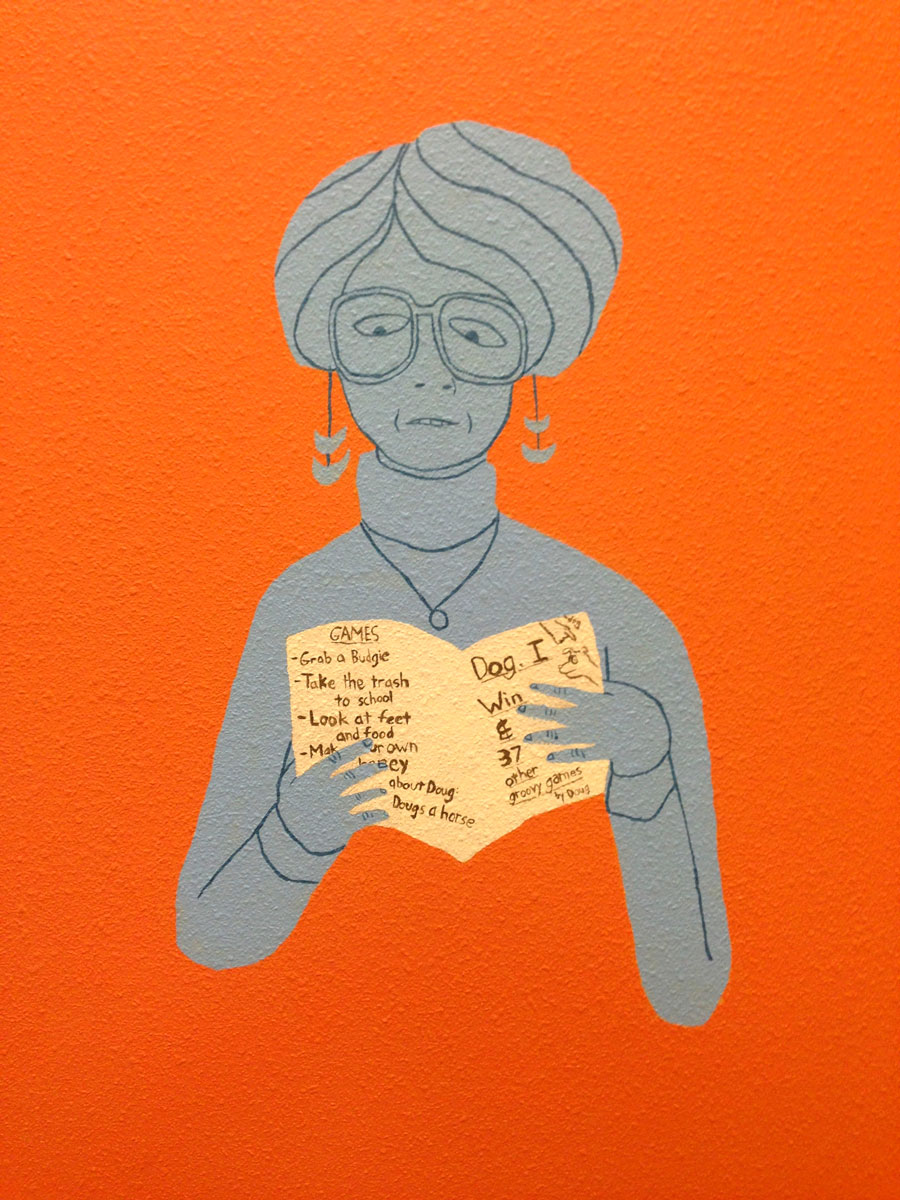 GAMES
-Grab a Budgie
-Take the trash
to school
-Look at feet
and food
own
about Doug:
Dougs a horse
Dog. I
Win
&
37
other
groovy games
by Doug